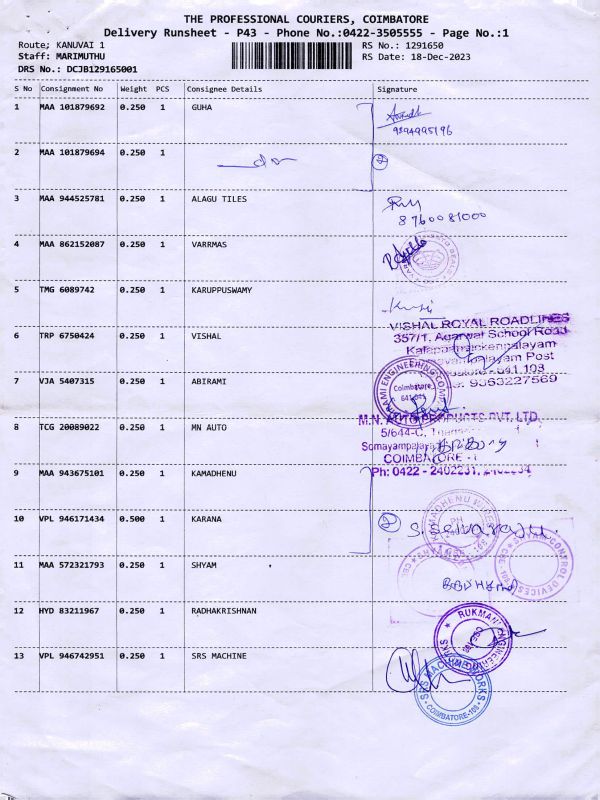 THE PROFESSIONAL COURIERS, COIMBATORE
Delivery Runsheet - P43 - Phone No.:0422-3505555 - Page No.:1
Route; KANUVAI 1 RS No.: 1291650
Staff: MARIMUTHU RS Date: 18-Dec-2023
DRS No.: DCJB129165001
S No Consignment No Weight PCS Consignee Details Signature
1 MAA 101879692 0.250 1 GUHA
9894995196
2 MAA 101879694 0.250 1 do 2
3 MAA 944525781 0.250 1 ALAGU TILES
8760081000
4 MAA 862152087 0.250 1 VARRMAS
5 TMG 6089742 0.250 1 KARUPPUSWAMY
VISHAL ROYAL ROADLINES
6 TRP 6750424 0.250 1 VISHAL 357/1, Agarwal School Road
Post
641 108
7 VJA 5407315 0.250 1 ABIRAMI 9363227569
ENGINEERING
Coimbatore
8 TCG 20089022 0.250 1 MN AUTO M.N. AUTO PRODUCTS PVT. LTD.
5/644-C,
COIMBATORE
9 MAA 943675101 0.250 1 KAMADHENU Ph: 0422 - 2402231,
KAMADHENU
10 VPL 946171434 0.500 1 KARANA 2 S. Selvaraju.
11 MAA 572321793 0.250 1 SHYAM
CONTROL DEVICES
12 HYD 83211967 0.250 1 RADHAKRISHNAN
RUKMANI ENGINEERING
13 VPL 946742951 0.250 1 SRS MACHINE
SRS MACHINE WORKS
COIMBATORE-108